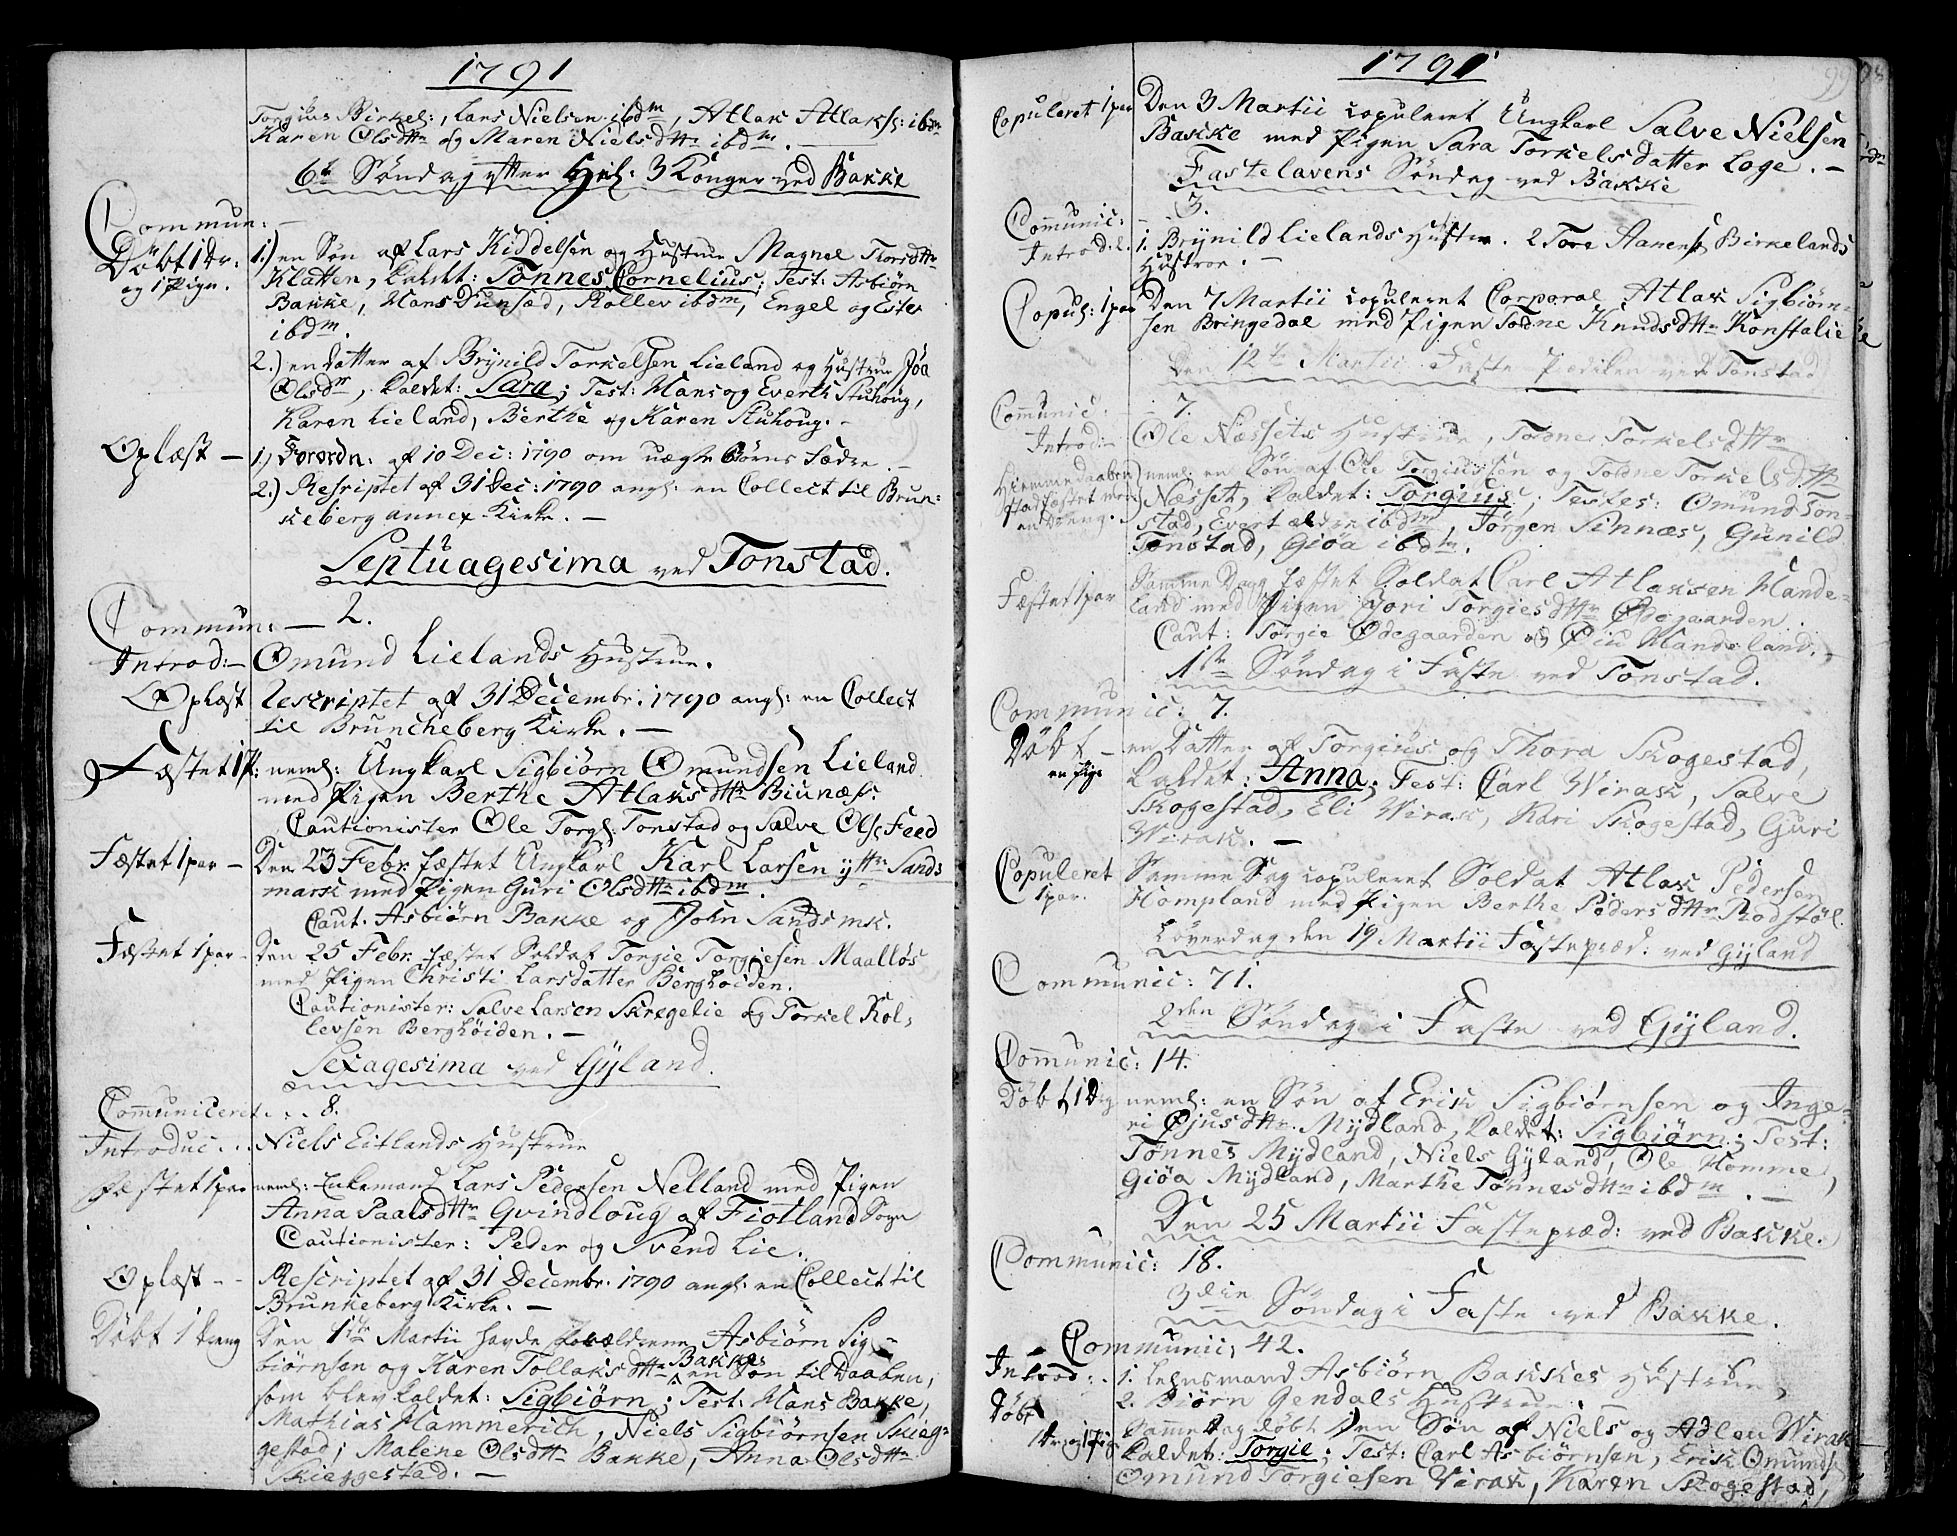 1791
Torgius Birkel:, Lars Nielsen ibdm, Atlak Atlaks: ibdm
Karen Olsdttr og Maren Nielsdttr ibdm. —
6te Søndag efter Hel: 3 Konger ved Bakke
Commun: —
Döbt 1 Dr: og 1 Pige.
1.) en Søn af Lars Kiddelsen og Hustrue Magnel Thorsdttr
Klatten, kaldet: Tønnes Cornelius; Test: Asbiørn
Bakke, Hans Dunsæd, Rollev ibdm, Engel og Ester
ibdm.
2.) en Datter af Brÿnild Torkelsen Lieland og Hustrue Jöa
Olsdtr, kaldet: Sara; Test: Hans og Everth Stuhoug,
Karen Lieland, Berthe og Karen Stuhoug. —
Oplæst —
1.) Forordn: af 10 Dec: 1790 om uægte Börns Fædre. —
2.) Rescriptet af 31 Dec: 1790 angl: en Collect til Brun-
keberg annex Kirke. —
Septuagesima ved Tonstad.
Commun: — 2.
Introd: — Omund Lielands Hustrue.
Oplæst Rescriptet af 31 Decembr. 1790 angl: en Collect
til Bruncheberg Kirke. —
Fæstet 1 P: neml: Ungkarl Sigbiörn Omundsen Lieland
med Pigen Berthe Atlaksdttr Biunæs.
Cautionister Ole Torgl: Tonstad og Salve Ols: Feed
Fæstet 1 par — Den 23 Febr. fæstet Ungkarl Karl Larsen yttr Sands
mark med Pigen Guri Olsdttr ibdm.
Caut. Asbiörn Bakke og John Sandsmk.
Fæstet 1 par — Den 25 Febr. fæstet Soldat Torgie Torgiesen Maalløs
med Pigen Christi Larsdatter Berghöiden.
Cautionister: Salve Larsen Skregelie og Torkel Rol-
levsen Berghöiden. —
Sexagesima ved Gÿland.
Communiceret . . . 8.
Introduc . . . Niels Eitlands Hustrue
Fæstet 1 par neml: Enkemand Lars Pedersen Nelland med Pigen
Anna Paalsdttr Gvindloug af Fiotland Sogn
Cautionister: Peder og Svend Lie.
Oplæst - - Rescriptet af 31 Decembr. 1790 angl: en Collect til
Brunkeberg Kirke. —
Döbt 1 Dreng Den 1te Martii havde Forældrene Asbiörn Sig-
biørnsen og Karen Tollaksdttr Bakke en Søn til Daaben,
som blev kaldet: Sigbiörn; Test: Hans Bakke,
Mathias Hammerich, Niels Sigbiørnsen Skieg-
gestad; Malene Olsdttr Bakke, Anna Olsdttr
Skieggestad. —
1791
99
Copuleret 1 par Den 3 Martii copuleret Ungkarl Salve Nielsen
Bakke med Pigen Sara Torkelsdatter Loge. —
Fastelavens Søndag ved Bakke
Communic: — 3.
Introd: 2. 1. Brÿnild Lielands Hustru. 2 Tore Aanens: Birkelands
Hustroe. —
Copul: 1 par Den 7 Martii copuleret Corporal Atlak Sigbiörn-
sen Bringedal med Pigen Todne Knudsdttr Konstalie
Den 12te Martii Faste Prædiken ved Tonstad
Communic. — 7.
Introd: — Ole Næssets Hustrue, Todne Torkelsdttr
Hiemmedaaben stadfæstet med en Dreng.
neml: en Søn af Ole Torgiussen og Todne Torkelsdttr
Næsset, kaldet: Torgius; Testes: Omund Ton-
stad, Evert ældre ibdm, Jörgen Sinnæs, Gunild
Tonstad, Giøa ibdm.
Fæstet 1 par Samme Dag fæstet Soldat Carl Atlaksen Mande-
land med Pigen Gori Torgiesdttr Ödegaarden.
Caut: Torgie Ødegaarden og Øiu Mandeland. —
1ste Søndag i Faste ved Tonstad.
Communic: 7.
Döbt — en Pige
en Datter af Torgius og Thora Skogestad,
kaldet: Anna; Test: Carl Wirak, Salve
Skogestad, Eli Wirak, Kari Skogestad, Guri
Wirak. —
Copuleret 1 par. Samme Dag copuleret Soldat Atlak Pedersen
Hompland med Pigen Berthe Pedersdttr Rodstøl.
Löverdag den 19 Martii Fastepræd: ved Gÿland
Communic: 71.
2den Søndag i Faste ved Gÿland.
Communic: 14.
Döbt 1 Drg neml: en Søn af Erik Sigbiørnsen og Inge-
ri Ojusdttr. Mÿdland, kaldet: Sigbiørn; Test:
Tønnes Mÿdland, Niels Gÿland, Ole Homme,
Giöa Mÿdland, Marthe Tønnesdttr ibdm. —
Den 25 Martii Fastepræd: ved Bakke.
Communic: 18.
3die Søndag i Faste ved Bakke.
Communic; 42.
Introd: . 1. Lehnsmand Asbiørn Bakkes Hustrue,
2. Biörn Gendals Hustrue. —
Döbt 1 Dr. og 1 Pig Samme Dag döbt den Søn af Niels og Adlen Wirak
kaldet: Torgie; Test: Carl Asbiörnsen, Erik Omunds:
Omund Torgiesen Virak, Karen Skogestad,